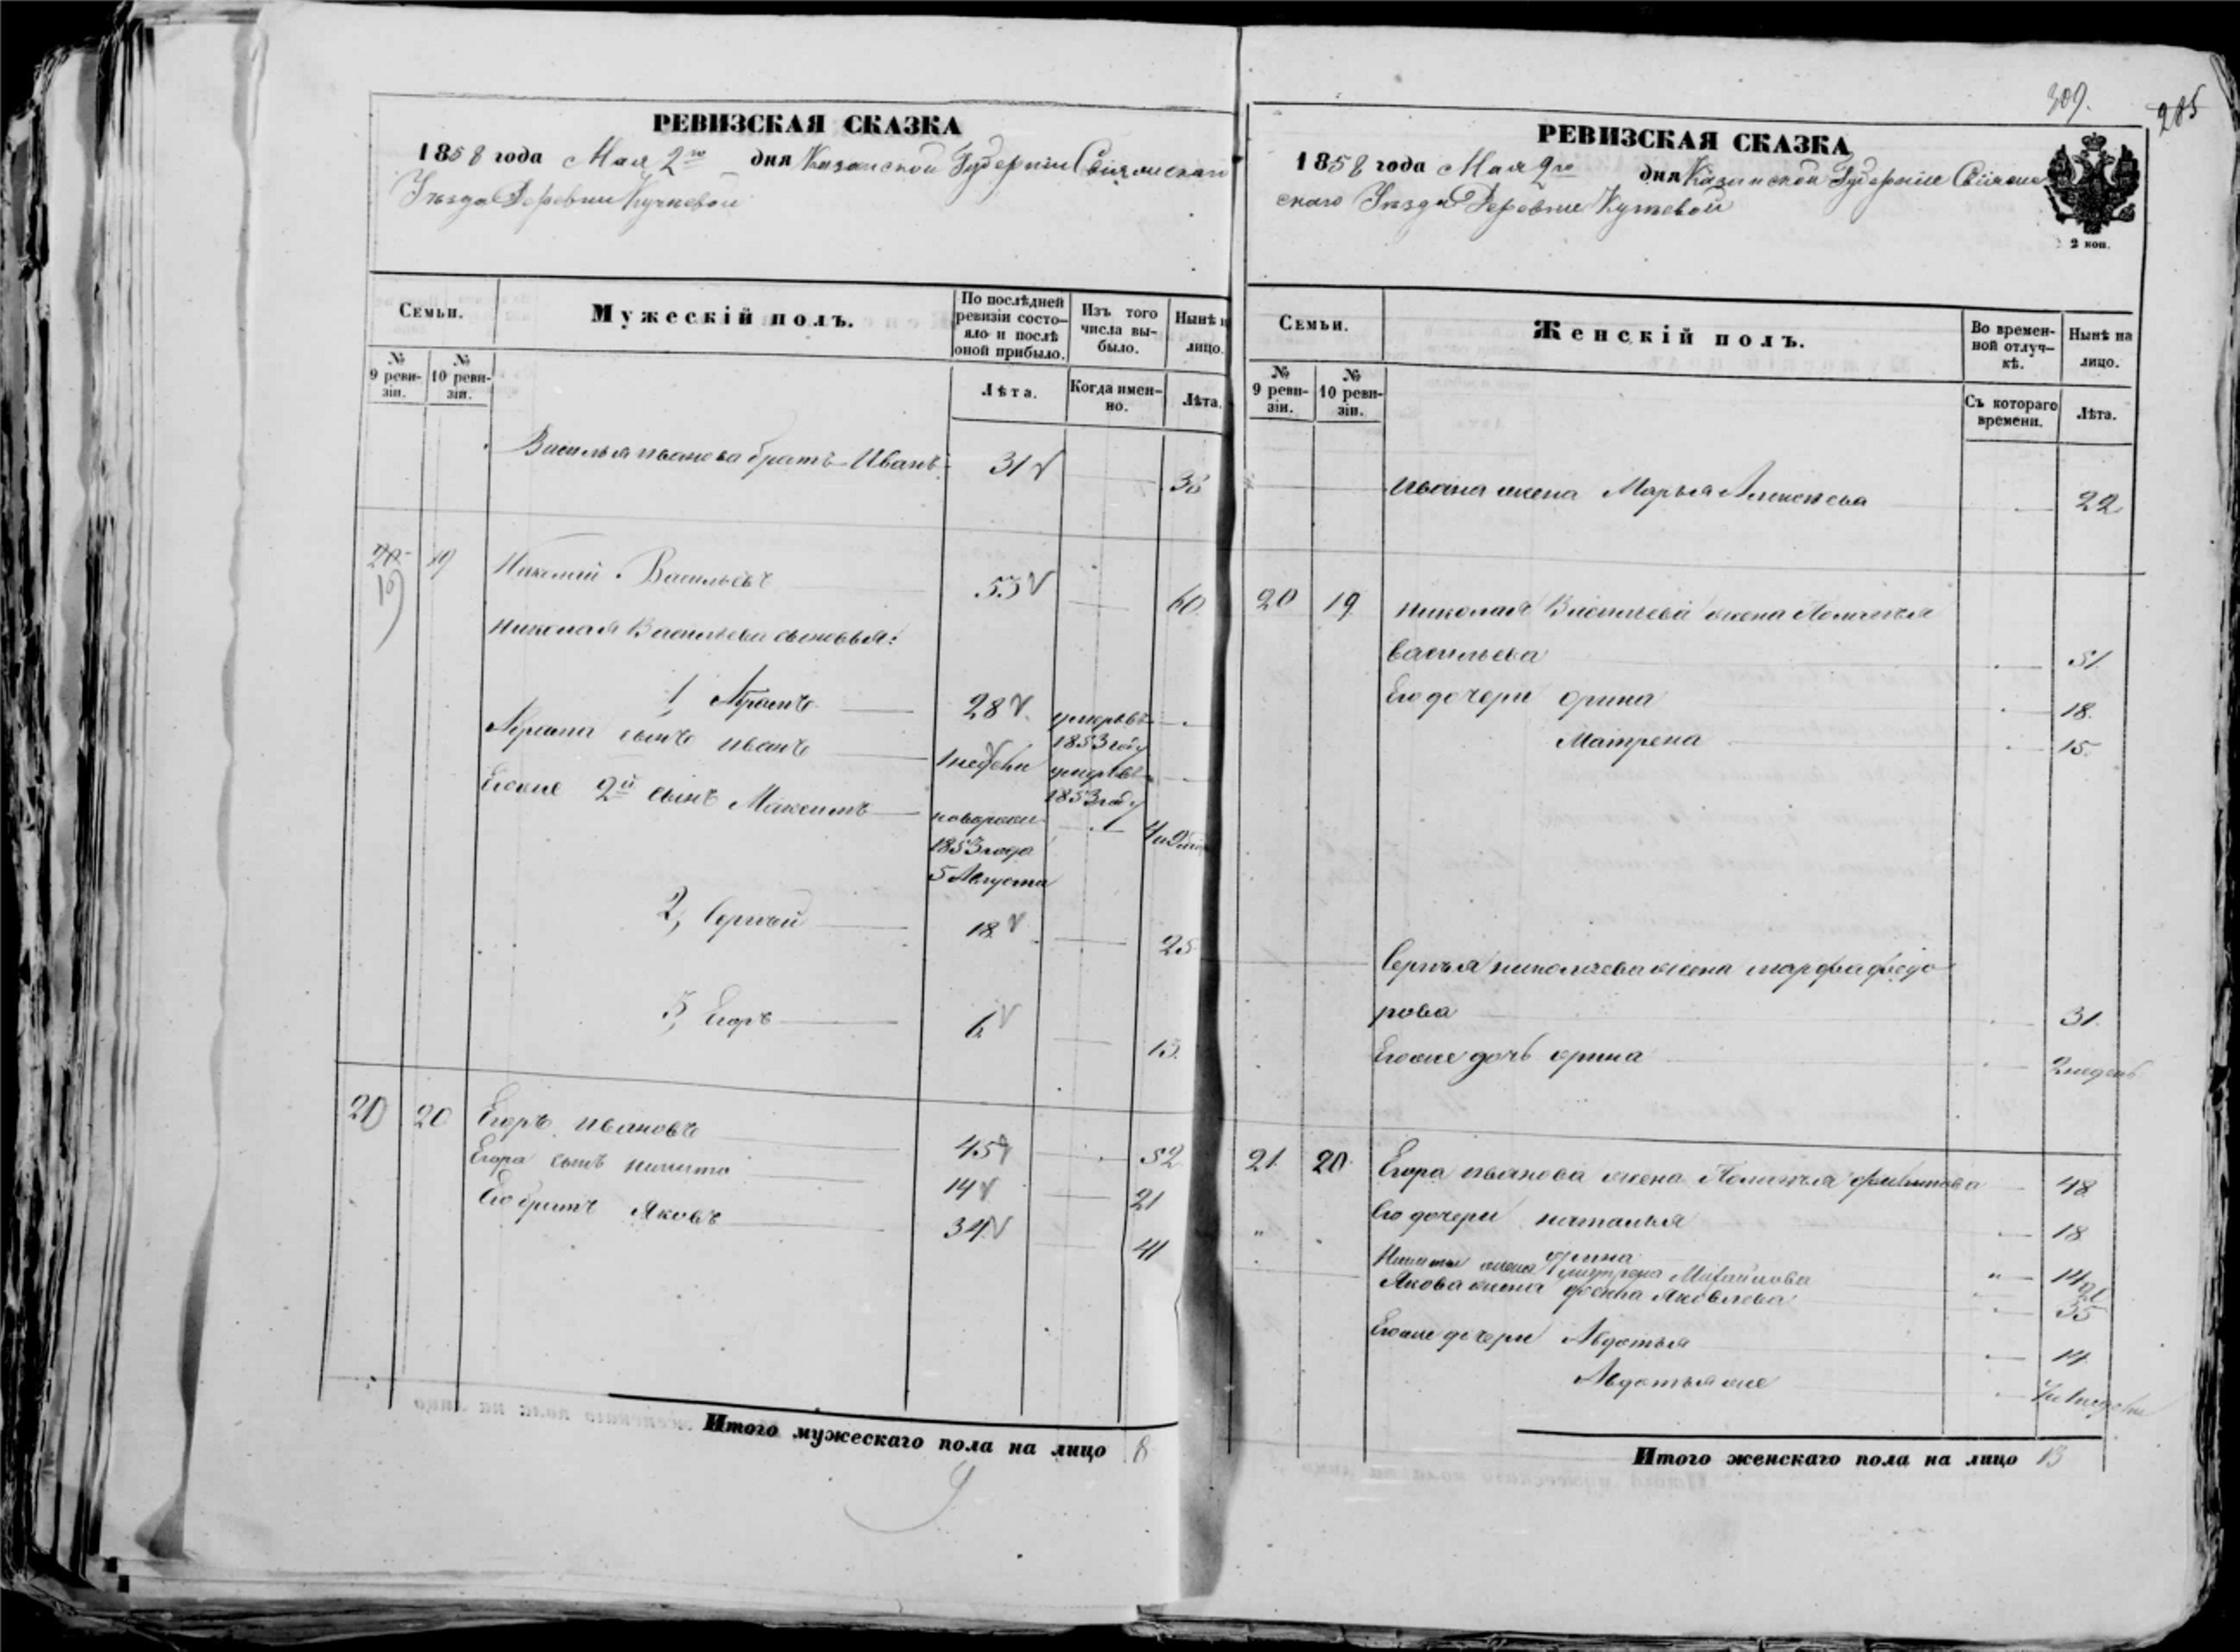 РЕВИЗСКАЯ СКАЗКА
1858 года Мая 2го дня Казанской Губернии Свіяжскаго
Уѣзда Деревни Кучкевой
Семьи.
Мужескій полъ.
По послѣдней ревизіи состо-
яло и послѣ оной прибыло.
Изъ того числа вы-
было.
Нынѣ
лицо.
№ 9 реви-
зіи.
№ 10 реви-
зіи.
Лѣта.
Когда имен-
но.
Лѣта.
Василья иванова братъ Иванъ 31 38
19 Николай Васильевъ 53 60
Николая Васильева сыновья:
1, Абрамъ 28 умеръ въ 1853 году
Абрама сынъ иванъ 1 недели умеръ въ 1853 году
Егоже 2й сынъ Максимъ новорож 1853 года 5 Августа
2, Сергей 18 25
3, Егоръ 6 13
20 20 Егоръ ивановъ 45 52
Егора сынъ никита 14 21
Его братъ Яковъ 34 41
Итого мужескаго пола на лицо 8
309.
285
РЕВИЗСКАЯ СКАЗКА
1858 года Мая 2го дня Казанской Губернии Свіяж
скаго Уѣзда Деревни Кучкевой
2 коп.
Семьи.
Женскій полъ.
Во времен-
ной отлуч-
кѣ.
Нынѣ на
лицо.
№ 9 реви-
зіи.
№ 10 реви-
зіи.
Съ котораго
времени.
Лѣта.
Ивана жена Марья Алексеева 22
20 19 Николая Васильева жена Пелагея
Васильева 51
Его дочери орина 18
Матрена 15
Сергея николаева жена марфа федо
рова 31
Егоже дочь орина 2 недель
21 20 Егора иванова жена Пелагея филипова 48
Его дочери наталья 18
орина 14
Никиты жена матрена Михайлова 21
Якова жена фекла Яковлева 35
Егоже дочери Авдотья 14
Авдотья же
Итого женскаго пола на лицо 13